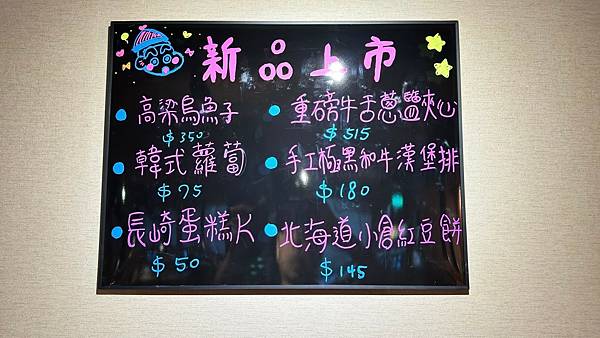 新品上市
高梁烏魚子
$350
重磅牛舌蔥鹽夾心
$515
韓式蘿蔔
$75
手工極黑和牛漢堡排
$180
長崎蛋糕片
$50
北海道小倉紅豆餅
$145